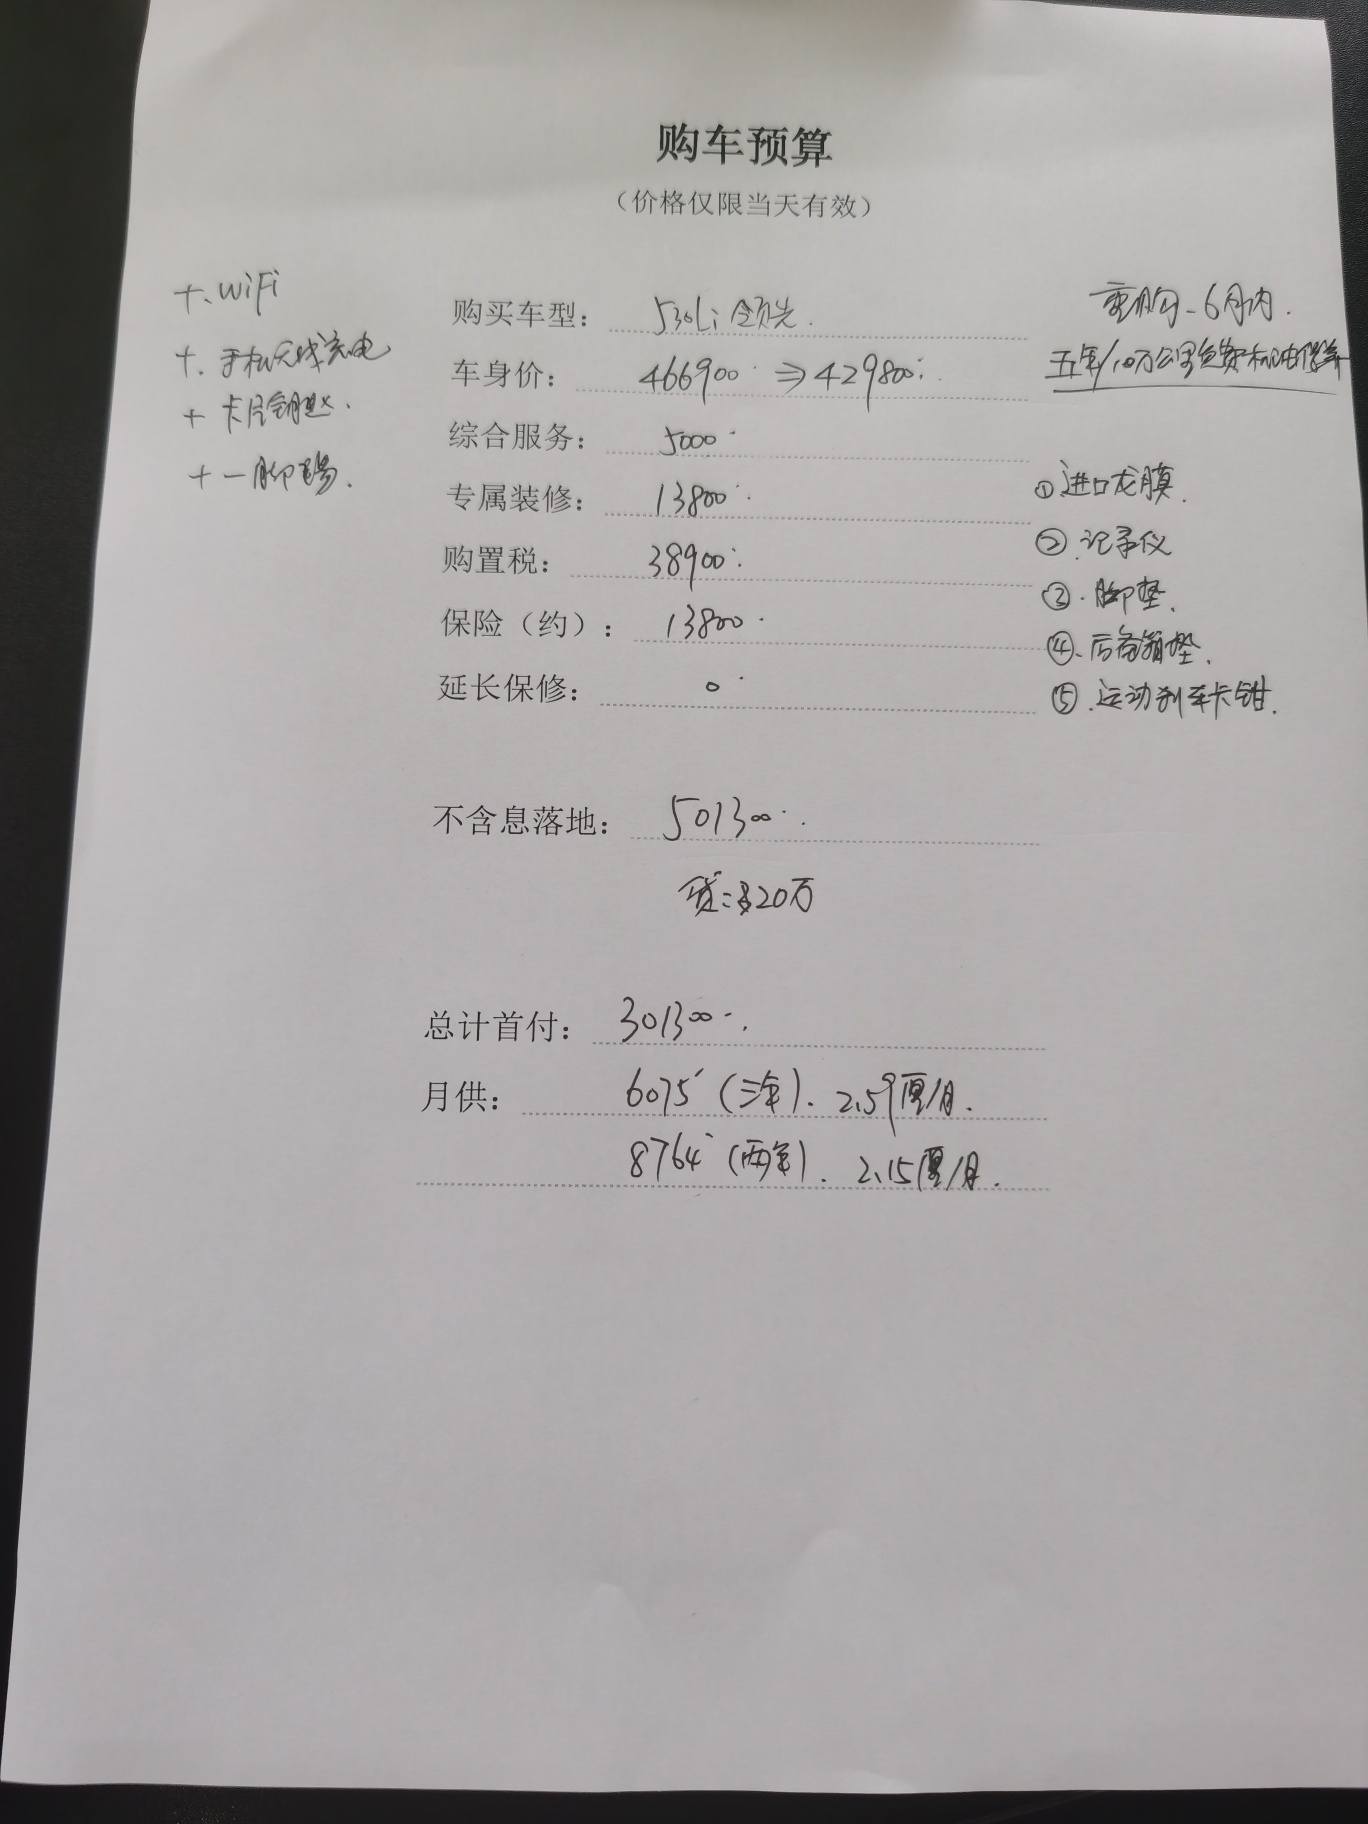 购车预算
（价格仅限当天有效）
+、WiFi
+、手机无线充电
+ 卡片钥匙.
+ 一脚踢.
购买车型： 530Li 领先.
车身价： 466900 ⇒ 429800
综合服务： 5000
专属装修： 13800
购置税： 38900
保险（约）： 13800
延长保修： 0
重购 - 6月内.
五年/10万公里免费机油保养
①进口龙膜.
②.记录仪
③.脚垫.
④、后备箱垫.
⑤.运动刹车卡钳.
不含息落地： 501300
贷：20万
总计首付： 301300
月供： 6075 (三年). 2.59厘/月.
8764 (两年). 2.15厘/月.